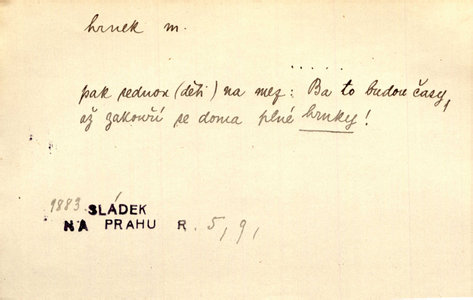 hrnek m.
.....
pak sednou (děti) na mez: Ba to budou časy,
až zakouří se doma plné hrnky!
9883 SLÁDEK
NA PRAHU R. 5, 9,